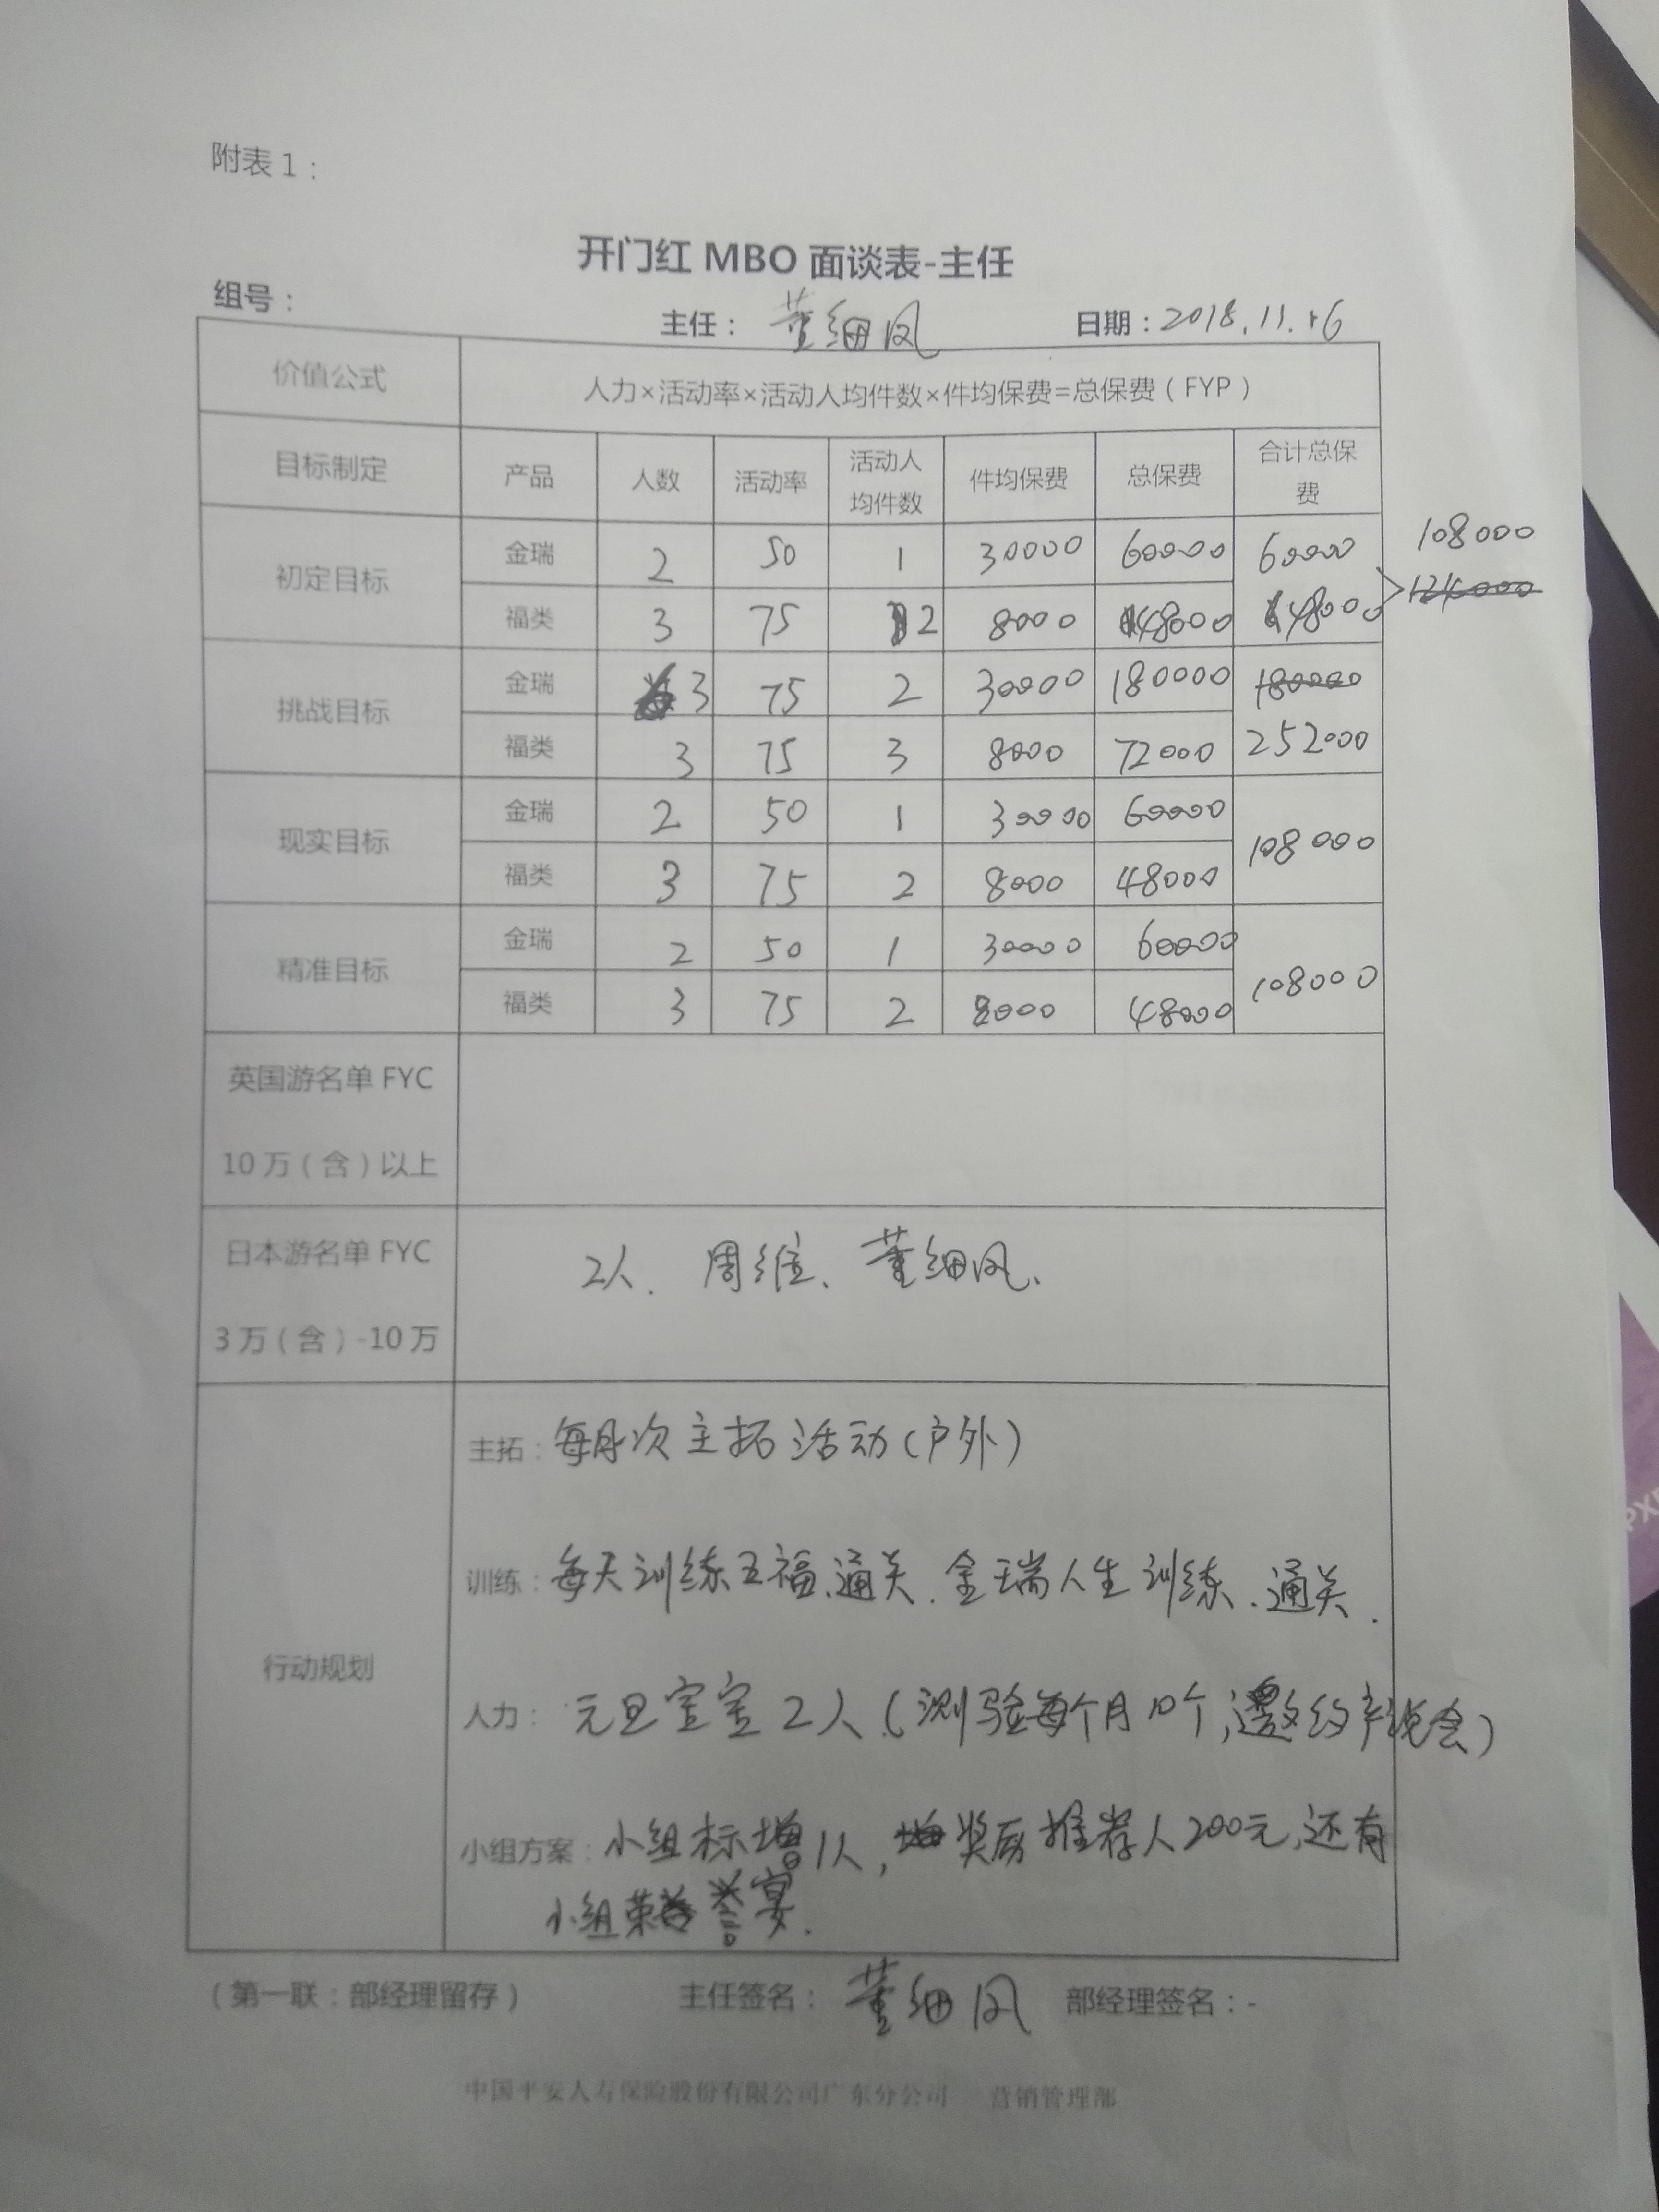 附表1：
开门红MBO面谈表-主任
组号： 主任：董细凤 日期：2018.11.16
价值公式 人力×活动率×活动人均件数×件均保费=总保费（FYP）
目标制定 产品 人数 活动率 活动人均件数 件均保费 总保费 合计总保费
初定目标 金瑞 2 50 1 30000 60000 60000 108000
福类 3 75 2 8000 48000 48000
挑战目标 金瑞 3 75 2 30000 180000 180000
福类 3 75 3 8000 72000 252000
现实目标 金瑞 2 50 1 30000 60000 108000
福类 3 75 2 8000 48000
精准目标 金瑞 2 50 1 30000 60000 108000
福类 3 75 2 8000 48000
英国游名单FYC
10万（含）以上
日本游名单FYC
3万（含）-10万
2人. 周维、董细凤、
行动规划
主拓：每月次主拓活动（户外）
训练：每天训练五福、通关. 金瑞人生训练、通关.
人力：元旦宝宝2人（测验每个月10个，邀约产说会）
小组方案：小组标增1人，奖励推荐人200元，还有
小组荣誉宴.
（第一联：部经理留存） 主任签名：董细凤 部经理签名：-
中国平安人寿保险股份有限公司广东分公司 营销管理部